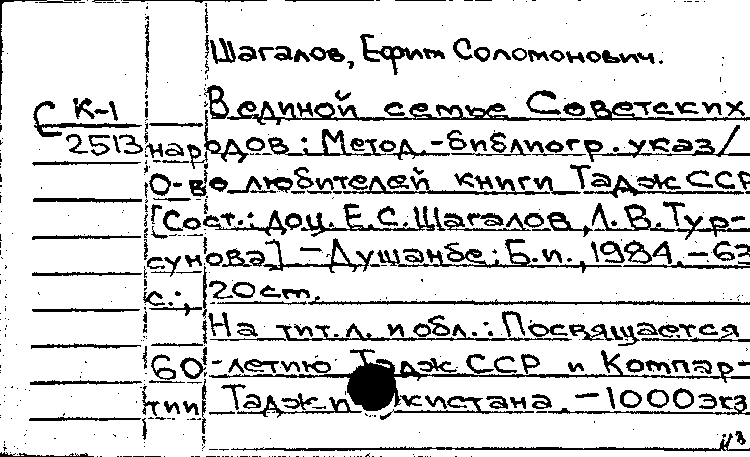 Шагалов, Ефим Соломонович.
С К-1 В единой семье Советских
2513 народов: Метод.-библиогр. указ/
О-во любителей книги ТаджССР
[Сост.: доц. Е.С. Шагалов, Л.В. Тур-
сунова] - Душанбе: Б.и., 1984. - 63
с.; 20 ст.
На тит.л. и обл.: Посвящается
60-летию Тадж ССР и Компар-
тии Таджикистана. - 1000 экз